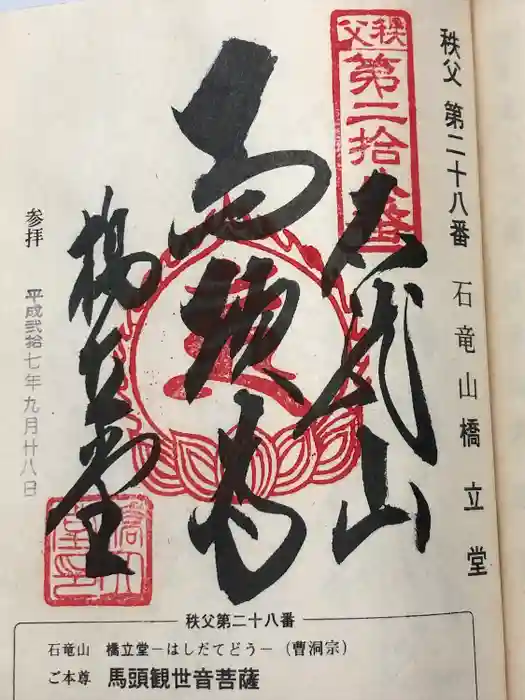 秩父 第二十八番 石竜山橋立堂
秩父
第二拾八番
石竜山
馬頭尊
橋立堂
参拝
平成弐拾七年九月廿八日
秩父第二十八番
石竜山 橋立堂－はしだてどう－（曹洞宗）
ご本尊 馬頭観世音菩薩